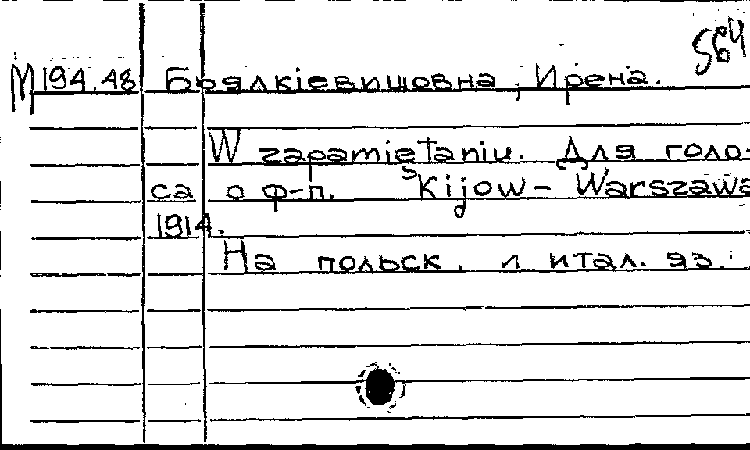 564
М194.48 Брялкіевишовна, Ирена.
W zapamiętaniu. Для голо-
са о ф-п. Kijow - Warszawa
1914.
На польск. и итал. яз.